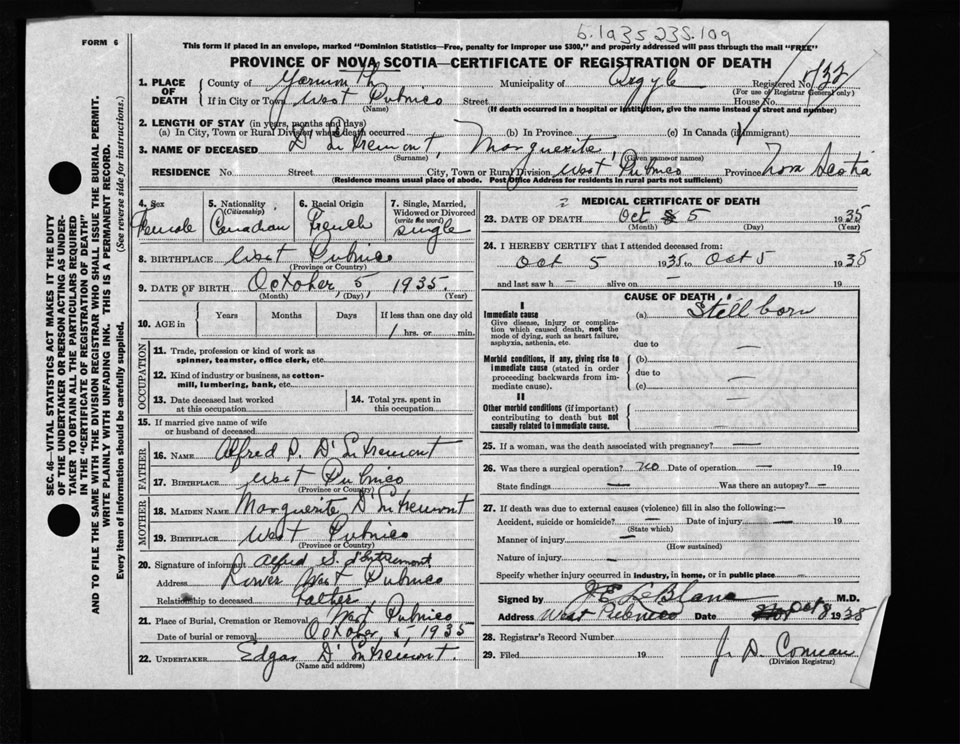 b.1935 235.109
FORM 6
This form if placed in an envelope, marked "Dominion Statistics—Free, penalty for improper use $300," and properly addressed will pass through the mail "FREE"
PROVINCE OF NOVA SCOTIA—CERTIFICATE OF REGISTRATION OF DEATH
1. PLACE OF DEATH
County of Yarmouth Municipality of Argyle Registered No.
(For use of Registrar General only)
If in City or Town West Pubnico Street House No.
(Name) (If death occurred in a hospital or institution, give the name instead of street and number)
2. LENGTH OF STAY (in years, months and days)
(a) In City, Town or Rural Division where death occurred (b) In Province (c) In Canada (if immigrant)
3. NAME OF DECEASED D'Entremont, Marguerite
(Surname) (Given name or names)
RESIDENCE No. Street City, Town or Rural Division West Pubnico Province Nova Scotia
(Residence means usual place of abode. Post Office Address for residents in rural parts not sufficient)
SEC. 46—VITAL STATISTICS ACT MAKES IT THE DUTY
OF THE UNDERTAKER OR PERSON ACTING AS UNDER-
TAKER TO OBTAIN ALL THE PARTICULARS REQUIRED
IN THE "CERTIFICATE OF REGISTRATION OF DEATH"
AND TO FILE THE SAME WITH THE DIVISION REGISTRAR WHO SHALL ISSUE THE BURIAL PERMIT.
WRITE PLAINLY WITH UNFADING INK. THIS IS A PERMANENT RECORD.
Every item of Information should be carefully supplied. (See reverse side for instructions.)
4. Sex
Female
5. Nationality
(Citizenship)
Canadian
6. Racial Origin
French
7. Single, Married,
Widowed or Divorced
(write the word)
Single
8. BIRTHPLACE West Pubnico
(Province or Country)
9. DATE OF BIRTH October 5 1935.
(Month) (Day) (Year)
10. AGE in Years Months Days If less than one day old
1 hrs. or min.
OCCUPATION
11. Trade, profession or kind of work as
spinner, teamster, office clerk, etc.
12. Kind of industry or business, as cotton-
mill, lumbering, bank, etc.
13. Date deceased last worked
at this occupation
14. Total yrs. spent in
this occupation
15. If married give name of wife
or husband of deceased
FATHER
16. NAME Alfred S. D'Entremont
17. BIRTHPLACE West Pubnico
(Province or Country)
MOTHER
18. MAIDEN NAME Marguerite D'Entremont
19. BIRTHPLACE West Pubnico
(Province or Country)
20. Signature of informant Alfred S. d'Entremont
Address Lower West Pubnico
Relationship to deceased Father
21. Place of Burial, Cremation or Removal West Pubnico
Date of burial or removal October, 5, 1935
22. UNDERTAKER Edgar D'Entremont.
(Name and address)
MEDICAL CERTIFICATE OF DEATH
23. DATE OF DEATH Oct 5 1935
(Month) (Day) (Year)
24. I HEREBY CERTIFY that I attended deceased from:
Oct 5 1935 to Oct 5 1935
and last saw h — alive on — 19
CAUSE OF DEATH
I
Immediate cause
Give disease, injury or complica-
tion which caused death, not the
mode of dying, such as heart failure,
asphyxia, asthenia, etc.
(a) Still born
due to —
Morbid conditions, if any, giving rise to
immediate cause (stated in order
proceeding backwards from im-
mediate cause).
(b)
due to —
(c)
II
Other morbid conditions (if important)
contributing to death but not
causally related to immediate cause.
25. If a woman, was the death associated with pregnancy? —
26. Was there a surgical operation? no Date of operation — 19
State findings — Was there an autopsy? —
27. If death was due to external causes (violence) fill in also the following:—
Accident, suicide or homicide? — Date of injury — 19
(State which)
Manner of injury —
(How sustained)
Nature of injury —
Specify whether injury occurred in industry, in home, or in public place —
Signed by J. E. LeBlanc M.D.
Address West Pubnico Date Oct 8 1935
28. Registrar's Record Number
29. Filed 19 J. D. Comeau
(Division Registrar)